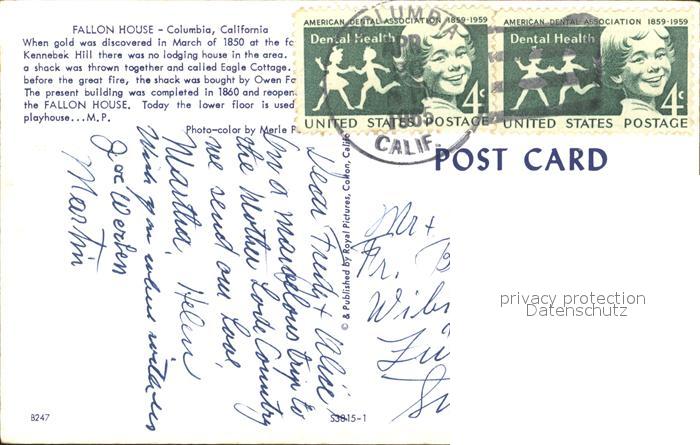 FALLON HOUSE – Columbia, California
When gold was discovered in March of 1850 at the fo
Kennebek Hill there was no lodging house in the area.
a shack was thrown together and called Eagle Cottage.
before the great fire, the shack was bought by Owen Fa
The present building was completed in 1860 and reopen
the FALLON HOUSE. Today the lower floor is used
playhouse...M.P.
Photo-color by Merle P
AMERICAN DENTAL ASSOCIATION 1859-1959
Dental Health
4c
UNITED STATES POSTAGE
AMERICAN DENTAL ASSOCIATION 1859-1959
Dental Health
4c
UNITED STATES POSTAGE
LUMBIA
CALIF.
POST CARD
© & Published by Royal Pictures, Colton, Calif
Dear Trudy & Alice,
In a marvelous trip to
the Mother Lode Country
we send our love,
Martha, Helen
Wish you where with us
Joe Werlen
Martin
Mr +
Fr. B
privacy protection
Datenschutz
B247
S3815-1